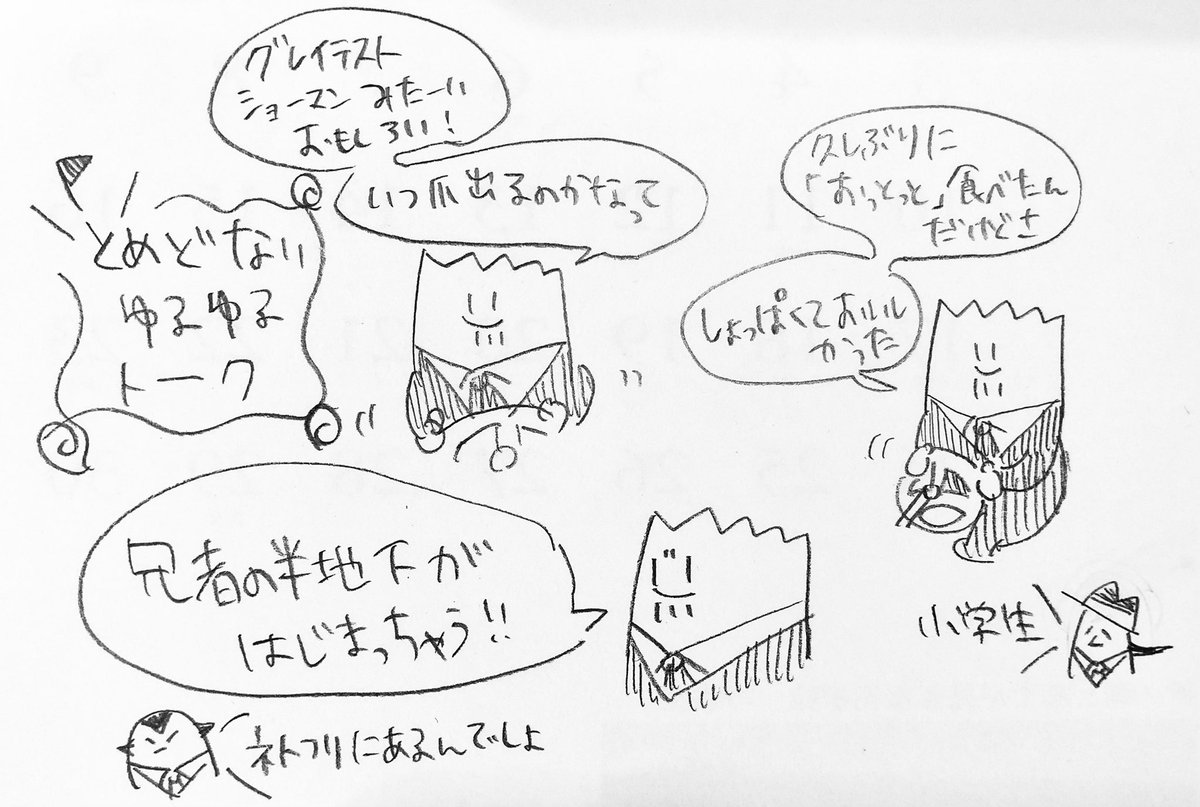 グレイテスト
ショーマン みたーい
おもしろい!
いつ爪出るのかなって
とめどない
ゆるゆる
トーク
久しぶりに
「おっとっと」食べたん
だけどさ
しょっぱくておいし
かった
兄者の半地下が
はじまっちゃう!!
小学生
ネトフリにあるんでしょ